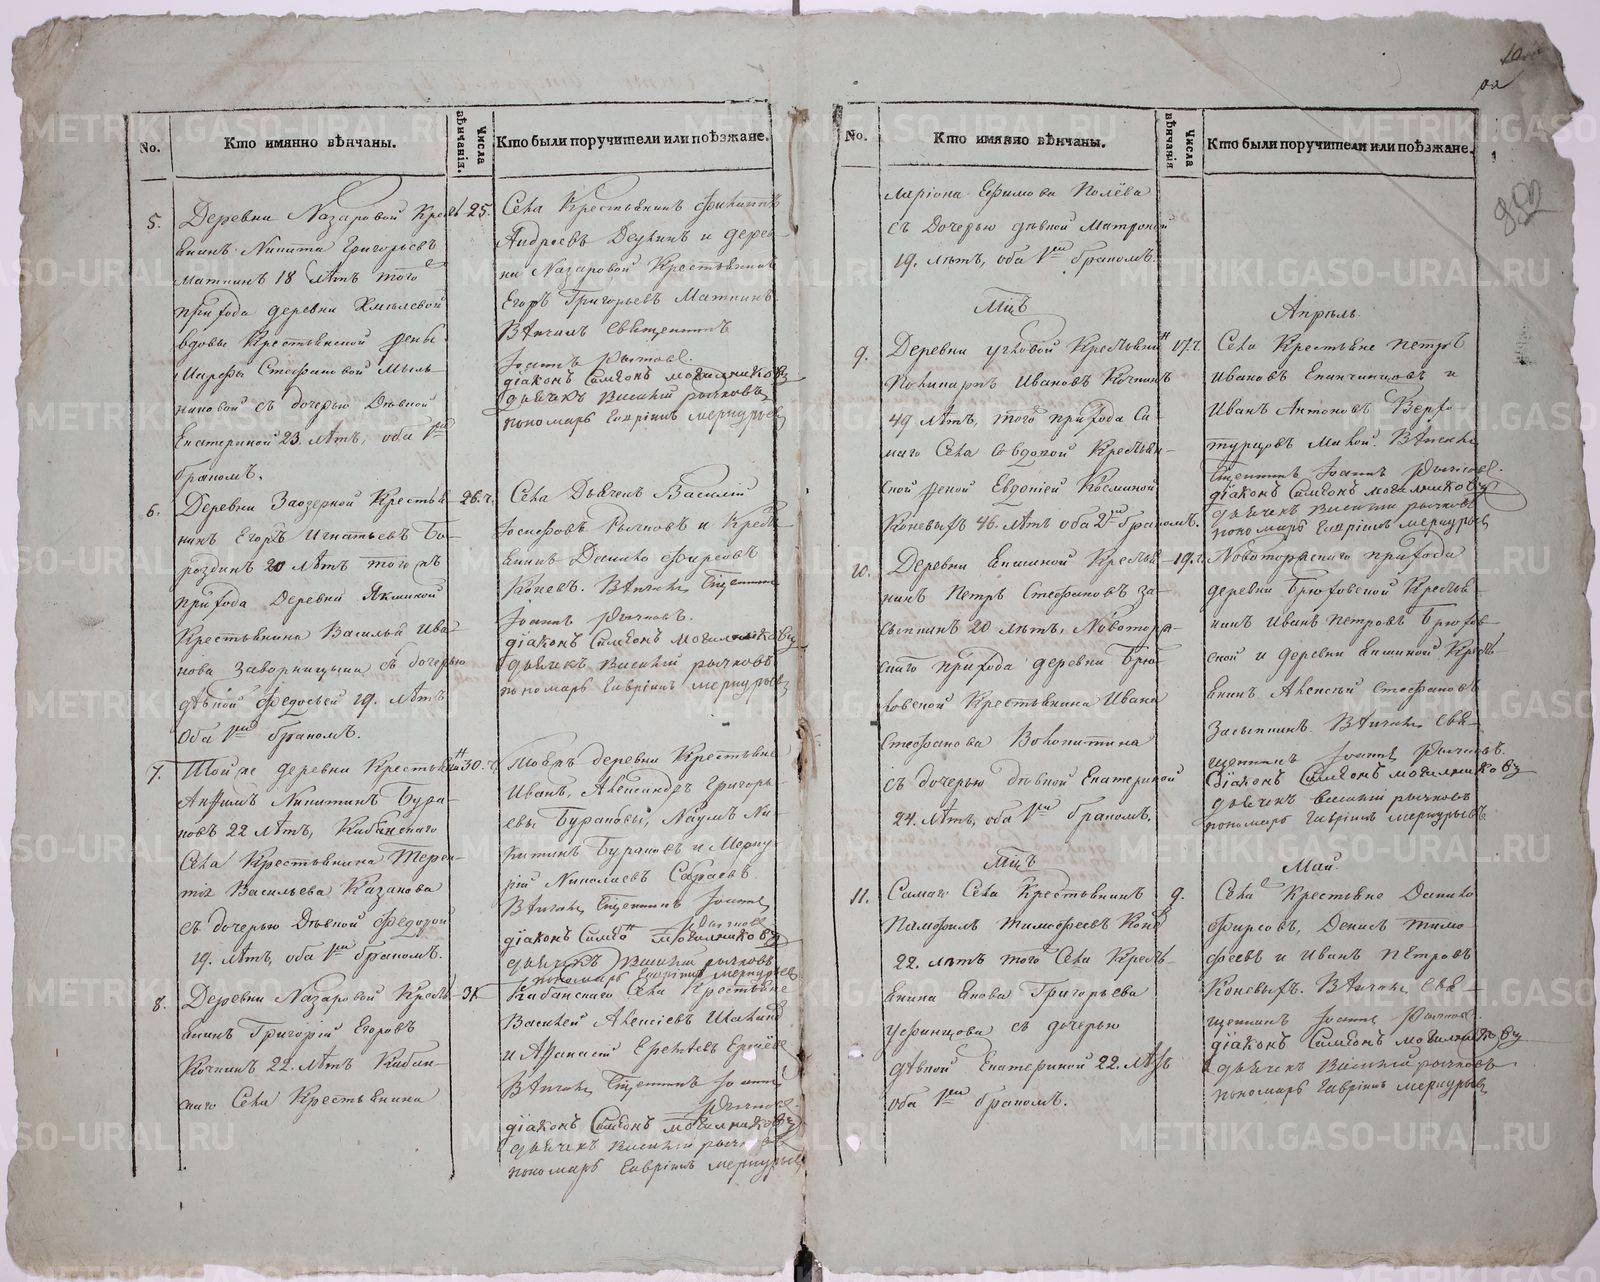 No.
Кто имянно вѣнчаны.
Числа вѣнчанія.
Кто были поручители или поѣзжане.
5.
Деревни Назаровой Кресть
янинъ Никита Григорьевъ
Маткинъ 18 лѣтъ того
прихода деревни Хмѣлевой
вдовы Крестьянской жены
Марфы Стефановой Мыль
никовой съ дочерью Дѣвкой
Екатериной 23 лѣтъ, оба 1мъ
бракомъ.
25.
Села Крестьянинъ Филиппъ
Андреевъ и дерев
ни Назаровой Крестьянинъ
Егоръ Григорьевъ Маткинъ.
Вѣнчалъ Священникъ
Іоаннъ Рычковъ.
діаконъ Симеонъ Могильниковъ
дьячекъ Василій Рычковъ
пономарь Гавріилъ Меркурьевъ
6.
Деревни Заозерной Крестья
нинъ Егоръ Игнатьевъ Бо-
роздинъ 20 лѣтъ того жъ
прихода Деревни Якшиной
Крестьянина Василья Ива
нова Заворницына съ дочерью
дѣвкой Федосьей 19. лѣтъ
Оба 1мъ бракомъ.
26.ч.
Села Дьячекъ Василій
Іосифовъ Рычковъ и Кресть
янинъ Данило Фирсовъ
Коневъ. Вѣнчалъ Священникъ
Іоаннъ Рычковъ.
діаконъ Симеонъ Могильниковъ
дьячекъ Василій Рычковъ
пономарь Гавріилъ Меркурьевъ
7.
Той же деревни Крестьянинъ
Никитинъ Бура-
ковъ 22 лѣтъ, Кабанскаго
Села Крестьянина Терен-
тія Васильева Казакова
съ дочерью Дѣвкой Федорой
19. лѣтъ, оба 1мъ бракомъ.
30.ч.
деревни Крестьяне
Иванъ, Александръ Григорь
евы Бураковы, Наумъ Ни
китинъ Бураковъ и Мерку
рій Николаевъ Сараевъ.
Вѣнчалъ Священникъ Іоаннъ
Рычковъ
діаконъ Симеонъ Могильниковъ
дьячекъ Василій Рычковъ
пономарь Гавріилъ Меркурьевъ
8.
Деревни Назаровой Кресть
янинъ Григорій Егоровъ
Кочкинъ 22. лѣтъ Кабан-
скаго Села Крестьянина
31
Кабанскаго Села Крестьяне
Василей Алексѣевъ
и Афанасій
Вѣнчалъ Священникъ Іоаннъ
Рычковъ
діаконъ Симеонъ Могильниковъ
дьячекъ Василій Рычковъ
пономарь Гавріилъ Меркурьевъ
No.
Кто имянно вѣнчаны.
Числа вѣнчанія.
Кто были поручители или поѣзжане.
ларіона Ефимова Полѣва
съ Дочерью дѣвкой Матроной
19. лѣтъ, оба 1мъ бракомъ.
Мцъ
Апрѣль.
9.
Деревни Крестьянинъ
Поликарпъ Ивановъ Кочкинъ
49 лѣтъ, того прихода Са
маго Села со вдовой Крестьян-
ской женой Евдокіей Косминой
Коневыхъ 46. лѣтъ оба 2мъ бракомъ.
17.ч.
Села Крестьяне Петръ
Ивановъ Епанчинцовъ и
Иванъ Антоновъ Верхо
турцовъ Малой. Вѣнчалъ
Священникъ Іоаннъ Рычковъ.
діаконъ Симеонъ Могильниковъ
дьячекъ Василій Рычковъ
пономарь Гавріилъ Меркурьевъ
10.
Деревни Крестья
нинъ Петръ Стефановъ За-
сыпкинъ 20 лѣтъ, Новотор-
скаго прихода деревни Брю-
ховской Крестьянина Ивана
Стефанова Волокитина
съ дочерью дѣвкой Екатериной
24. лѣтъ, оба 1мъ бракомъ.
19.ч.
прихода
деревни Брюховской Крестья
нинъ Иванъ Петровъ Брюхов
ской и деревни Кресть
янинъ Алексѣй Стефановъ
Засыпкинъ. Вѣнчалъ Свя-
щенникъ Іоаннъ Рычковъ.
діаконъ Симеонъ Могильниковъ
дьячекъ Василій Рычковъ
пономарь Гавріилъ Меркурьевъ
Мцъ
Май.
11.
Самаго Села Крестьянинъ
Памфилъ Тимофеевъ Коневъ
22. лѣтъ того Села Кресть-
янина Якова Григорьева
Уфинцова съ дочерью
дѣвкой Екатериной 22. лѣтъ
оба 1мъ бракомъ.
9.
Села Крестьяне Данило
Фирсовъ, Денисъ Тимо
феевъ и Иванъ Петровъ
Коневыхъ. Вѣнчалъ Свя-
щенникъ Іоаннъ Рычковъ.
діаконъ Симеонъ Могильниковъ
дьячекъ Василій Рычковъ
пономарь Гавріилъ Меркурьевъ
METRIKI.GASO-URAL.RU